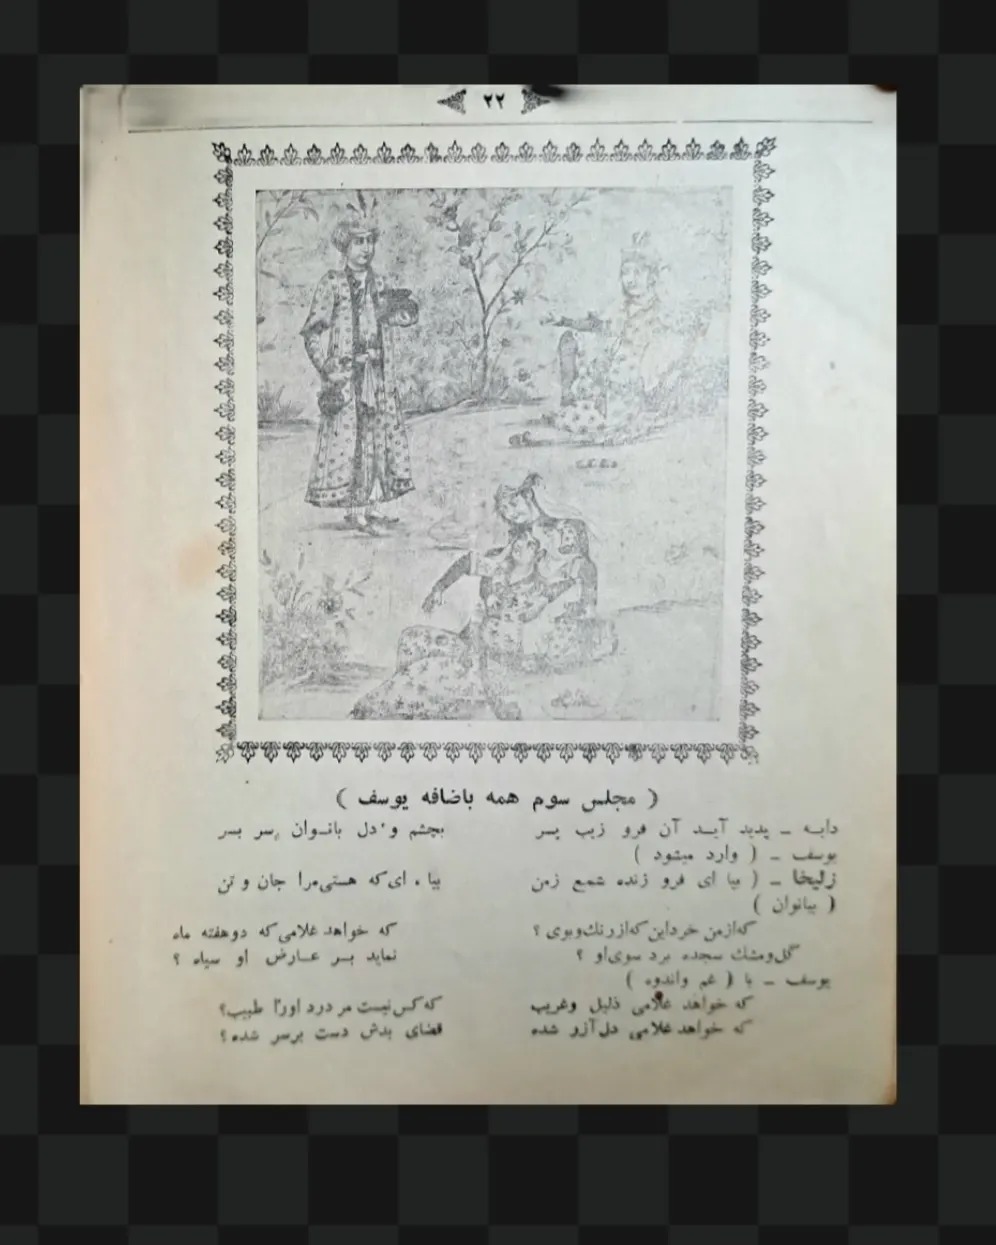 ۲۲
( مجلس سوم همه باضافه یوسف )
دایه ـ پدید آید آن فرو زیب پسر بچشم و دل بانوان سر بسر
یوسف ـ ( وارد میشود )
زلیخا ـ ( بیا ای فرو زنده شمع زمن بیا ، ای که هستی مرا جان و تن
( ببانوان )
که از من خرد این که از رنك و بوی ؟ که خواهد غلامی که دوهفته ماه
گل و مشك سجده برد سوی او ؟ نماید بر عارض او سیاه ؟
یوسف ـ با ( غم واندوه )
که خواهد غلامی ذلیل وغریب که کس نیست مر درد اورا طبیب؟
که خواهد غلامی دل آزر شده قضای بدش دست برسر شده ؟